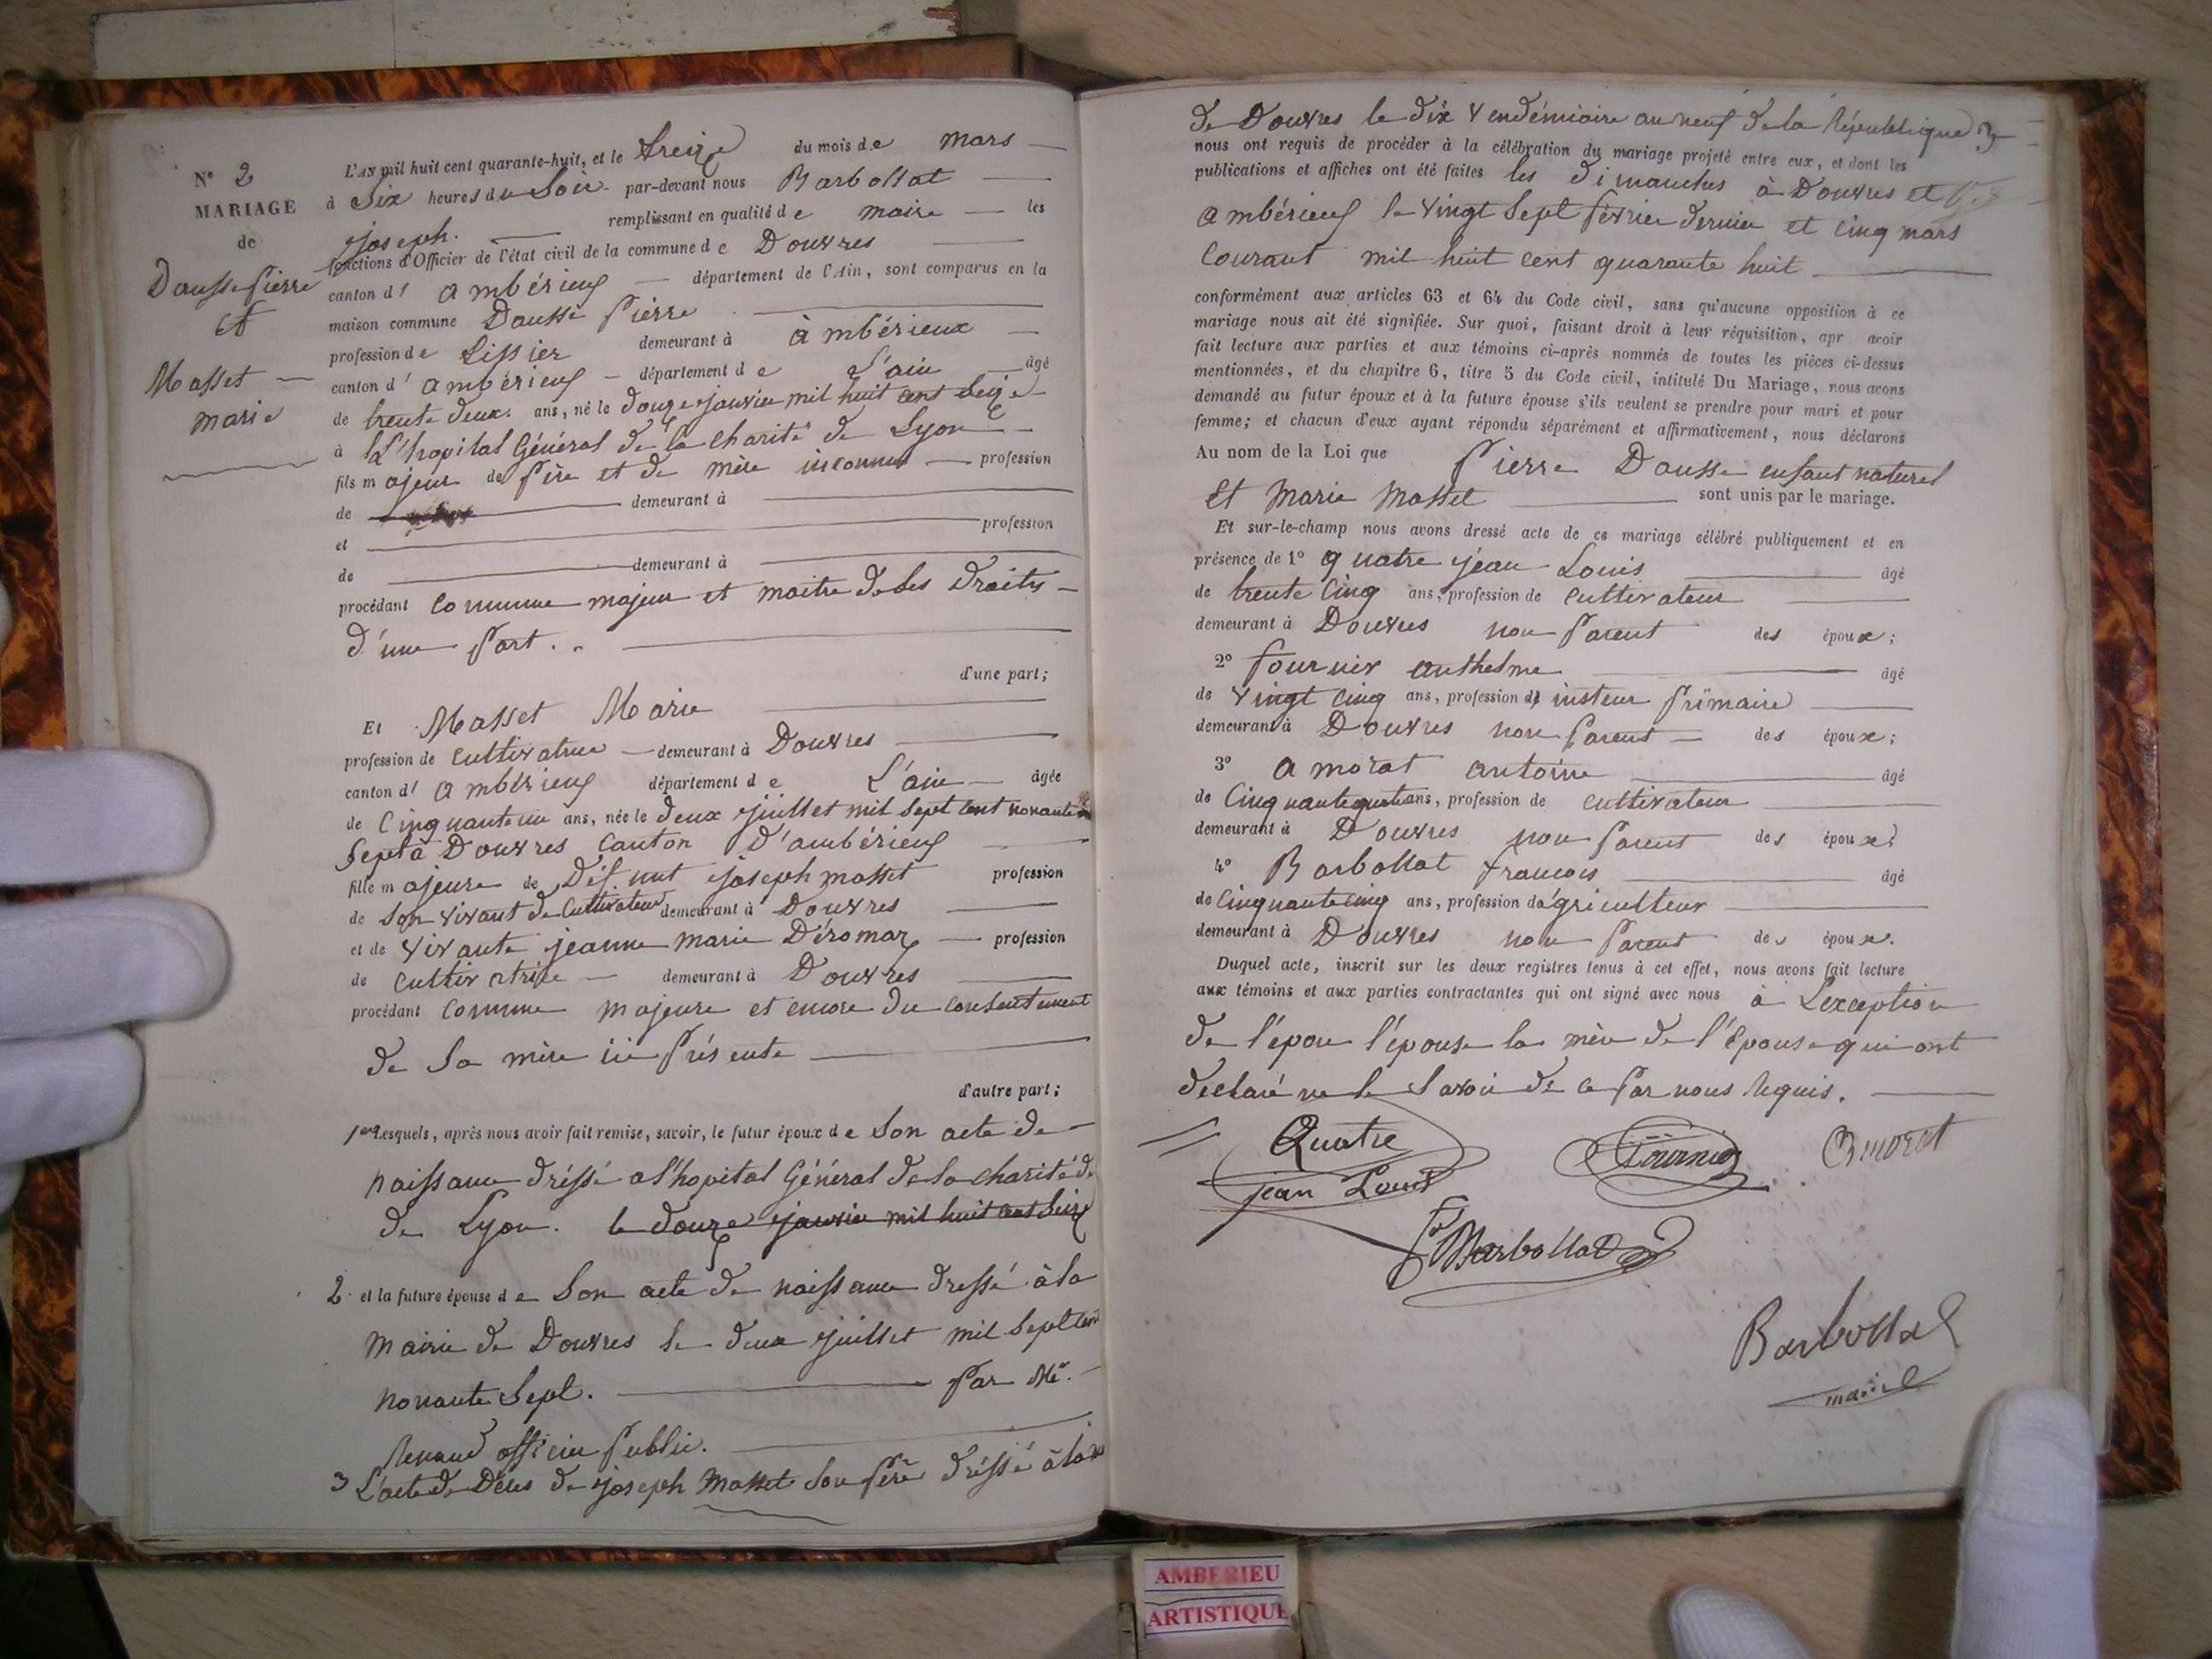 N° 2
MARIAGE
de
Dausse Pierre
et
Masset
marie
L'AN mil huit cent quarante-huit, et le treize du mois de mars
à Six heures du Soir par-devant nous Barbollat
joseph. remplissant en qualité de maire les
fonctions d'Officier de l'état civil de la commune de Douvres
canton d' ambérieux département de l'Ain, sont comparus en la
maison commune Dausse Pierre
profession de tissier demeurant à àmbérieux
canton d' ambérieux département de L'ain âgé
de trente deux ans, né le douze janvier mil huit cent seize
à L'hopital Général de la charité de Lyon
fils majeur de Père et de mère inconnus profession
de demeurant à
et profession
de demeurant à
procédant comme majeur et maitre de ses Droits
d'une Part.
d'une part;
Et Masset Marie
profession de cultivatrice demeurant à Douvres
canton d' ambérieux département de L'ain âgée
de Cinquante un ans, née le deux juillet mil sept cent nonante
sept à Douvres canton d'ambérieux
fille majeure de Défunt joseph masset profession
de son vivant de Cultivateur demeurant à Douvres
et de vivante jeanne marie Déromaz profession
de cultivatrice demeurant à Douvres
procédant comme majeure et encore du consentement
de sa mère ici Présente
d'autre part;
Lesquels, après nous avoir fait remise, savoir, le futur époux de son acte de
naissance dréssé a l'hopital Général de la charité de
de Lyon. le douze janvier mil huit cent seize
2 et la future épouse de son acte de naissance dressé à la
mairie de Douvres le deux juillet mil sept cent
nonante sept. Par Me.
Renaud officier Public.
3 L'acte de Décès de joseph Masset son Père dréssé à la
de Douvres le dix vendémiaire an neuf de la République
nous ont requis de procéder à la célébration du mariage projeté entre eux, et dont les
publications et affiches ont été faites les dimanches à Douvres et
ambérieux le vingt sept février dernier et cinq mars
courant mil huit cent quarante huit
conformément aux articles 63 et 64 du Code civil, sans qu'aucune opposition à ce
mariage nous ait été signifiée. Sur quoi, faisant droit à leur réquisition, apr avoir
fait lecture aux parties et aux témoins ci-après nommés de toutes les pièces ci-dessus
mentionnées, et du chapitre 6, titre 5 du Code civil, intitulé Du Mariage, nous avons
demandé au futur époux et à la future épouse s'ils veulent se prendre pour mari et pour
femme; et chacun d'eux ayant répondu séparément et affirmativement, nous déclarons
Au nom de la Loi que Pierre Dausse enfant naturel
et Marie Masset sont unis par le mariage.
Et sur-le-champ nous avons dressé acte de ce mariage célébré publiquement et en
présence de 1° quatre jean Louis âgé
de trente cinq ans, profession de cultivateur
demeurant à Douvres non Parent des époux;
2° fournier anthelme âgé
de vingt cinq ans, profession d' insteur Primaire
demeurant à Douvres non Parent des époux;
3° amorat antoine âgé
de Cinquante quatre ans, profession de cultivateur
demeurant à Douvres non Parent des époux;
4° Barbollat françois âgé
de cinquante cinq ans, profession d'agriculteur
demeurant à Douvres non Parent des époux.
Duquel acte, inscrit sur les deux registres tenus à cet effet, nous avons fait lecture
aux témoins et aux parties contractantes qui ont signé avec nous à L'exception
de l'épou l'épouse la mère de l'épouse qui ont
déclaré ne le savoir de ce Par nous Requis.
Quatre
jean Louis
Fournier
Amorat
Barbollat
Barbollat
maire
AMBERIEU
ARTISTIQUE